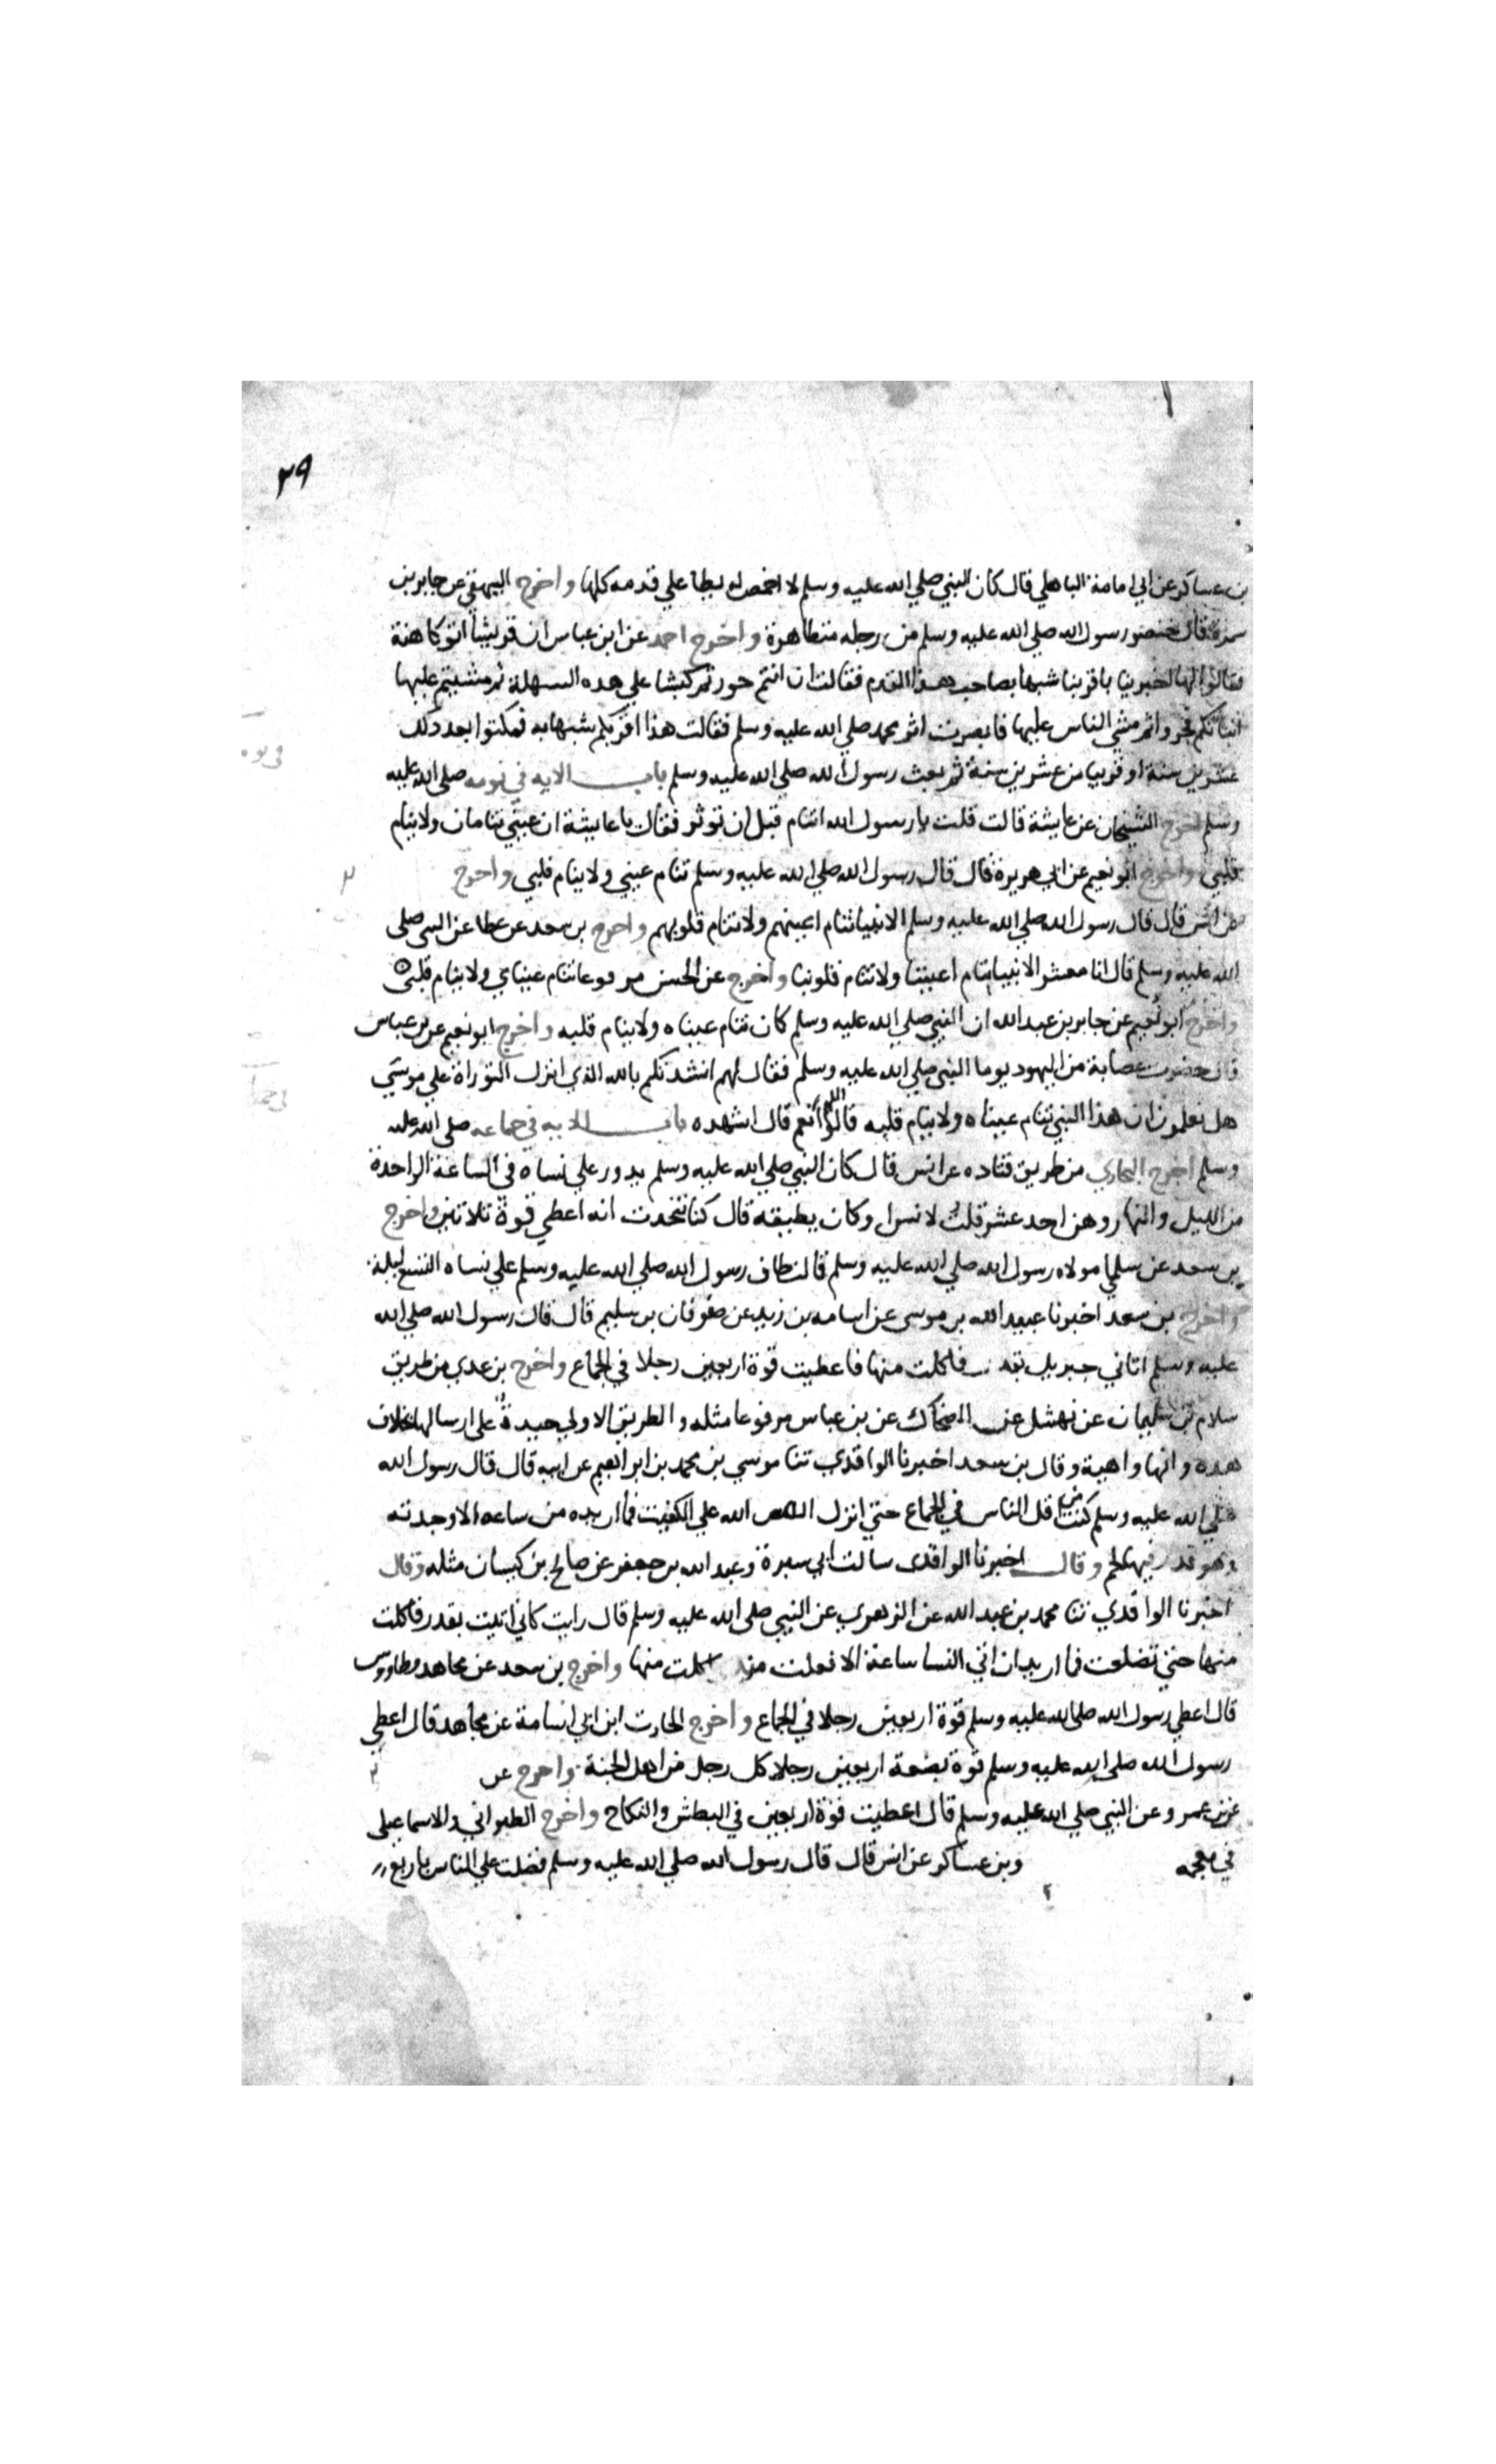 ٢٩
بن عساكر عن ابي امامة الباهلي قال كان النبي صلي الله عليه وسلم لا اخمص له يطا علي قدمه كلها واخرج البيهقي عن جابر بن
سمرة قال خنصر رسول الله صلي الله عليه وسلم من رجله متظاهرة واخرج احمد عن ابن عباس ان قريشا اتو كاهنة
فقالوا لها اخبرينا باقربنا شبها بصاحب هذا القدم فقالت ان انتم جررتم كبشا علي هذه السهلة ثم مشيتم عليها
انباتكم فجروا ثم مشي الناس عليها فابصرت اثر محمد صلي الله عليه وسلم فقالت هذا اقربكم شبها به فمكثوا بعد ذلك
عشرين سنة او قريبا من عشرين سنة ثم بعث رسول الله صلي الله عليه وسلم باب الايه في نومه صلي الله عليه
وسلم اخرج الشيخان عن عايشة قالت قلت يا رسول الله اتنام قبل ان توتر فقال يا عايشة ان عيني تنامان ولا ينام
قلبي واخرج ابو نعيم عن ابي هريرة قال قال رسول الله صلي الله عليه وسلم تنام عيني ولا ينام قلبي واخرج
عن انس قال قال رسول الله صلي الله عليه وسلم الانبيا تنام اعينهم ولا تنام قلوبهم واخرج بن سعد عن عطا عن النبي صلى
الله عليه وسلم قال انا معشر الانبيا تنام اعيننا ولا تنام قلوبنا واخرج عن الحسن مرفوعا تنام عيناي ولا ينام قلبي
واخرج ابو نعيم عن جابر بن عبد الله ان النبي صلي الله عليه وسلم كان تنام عيناه ولا ينام قلبه واخرج ابو نعيم عن بن عباس
قال حضرت عصابة من اليهود يوما النبي صلي الله عليه وسلم فقال لهم انشدتكم بالله الذي انزل التوراة علي موسي
هل تعلمون ان هذا النبي تنام عيناه ولا ينام قلبه قالوا اللهم نعم قال اشهده باب الايه في جماعه صلي الله عليه
وسلم اخرج البخاري من طريق قتاده عن انس قال كان النبي صلي الله عليه وسلم يدور علي نساه في الساعة الواحدة
من الليل والنهار وهن احد عشر قلت لانس او كان يطيقه قال كنا نتحدث انه اعطي قوة ثلاثين واخرج
بن سعد عن سلمي مولاه رسول الله صلي الله عليه وسلم قالت طاف رسول الله صلي الله عليه وسلم علي نساه التسع ليلة
واخرج بن سعد اخبرنا عبيد الله بن موسي عن اسامه بن زيد عن صفوان بن سليم قال قال رسول الله صلي الله
عليه وسلم اتاني جبريل بقدر فاكلت منها فاعطيت قوة اربعين رجلا في الجماع واخرج بن عدي من طريق
سلام بن سليمان عن نهشل عن الضحاك عن بن عباس مرفوعا مثله والطريق الاولي جيدة علي ارسالها بخلاف
هذه وانها واهية وقال بن سعد اخبرنا الواقدي ثنا موسي بن محمد بن ابراهيم عن ابيه قال قال رسول الله
صلي الله عليه وسلم كنت من اقل الناس في الجماع حتي انزل الله علي الكفيت فما اريده من ساعه الا وجدته
وهو قدر فيها لحم وقال اخبرنا الواقدي سالت ابي سبرة وعبد الله بن جعفر عن صالح بن كيسان مثله وقال
اخبرنا الواقدي ثنا محمد بن عبد الله عن الزهري عن النبي صلي الله عليه وسلم قال رايت كاني اتيت بقدر فاكلت
منها حتي تضلعت فما اريد ان اتي النسا ساعة الا فعلت منذ اكلت منها واخرج بن سعد عن مجاهد وطاووس
قال اعطي رسول الله صلي الله عليه وسلم قوة اربعين رجلا في الجماع واخرج الحارث ابن ابي اسامة عن مجاهد قال اعطي
رسول الله صلي الله عليه وسلم قوة بضعة اربعين رجلا كل رجل من اهل الجنة واخرج عن
عن بن عمرو عن النبي صلي الله عليه وسلم قال اعطيت قوة اربعين في البطش والنكاح واخرج الطبراني والاسماعيلي
في معجمه وبن عساكر عن انس قال قال رسول الله صلي الله عليه وسلم فضلت علي الناس باربع